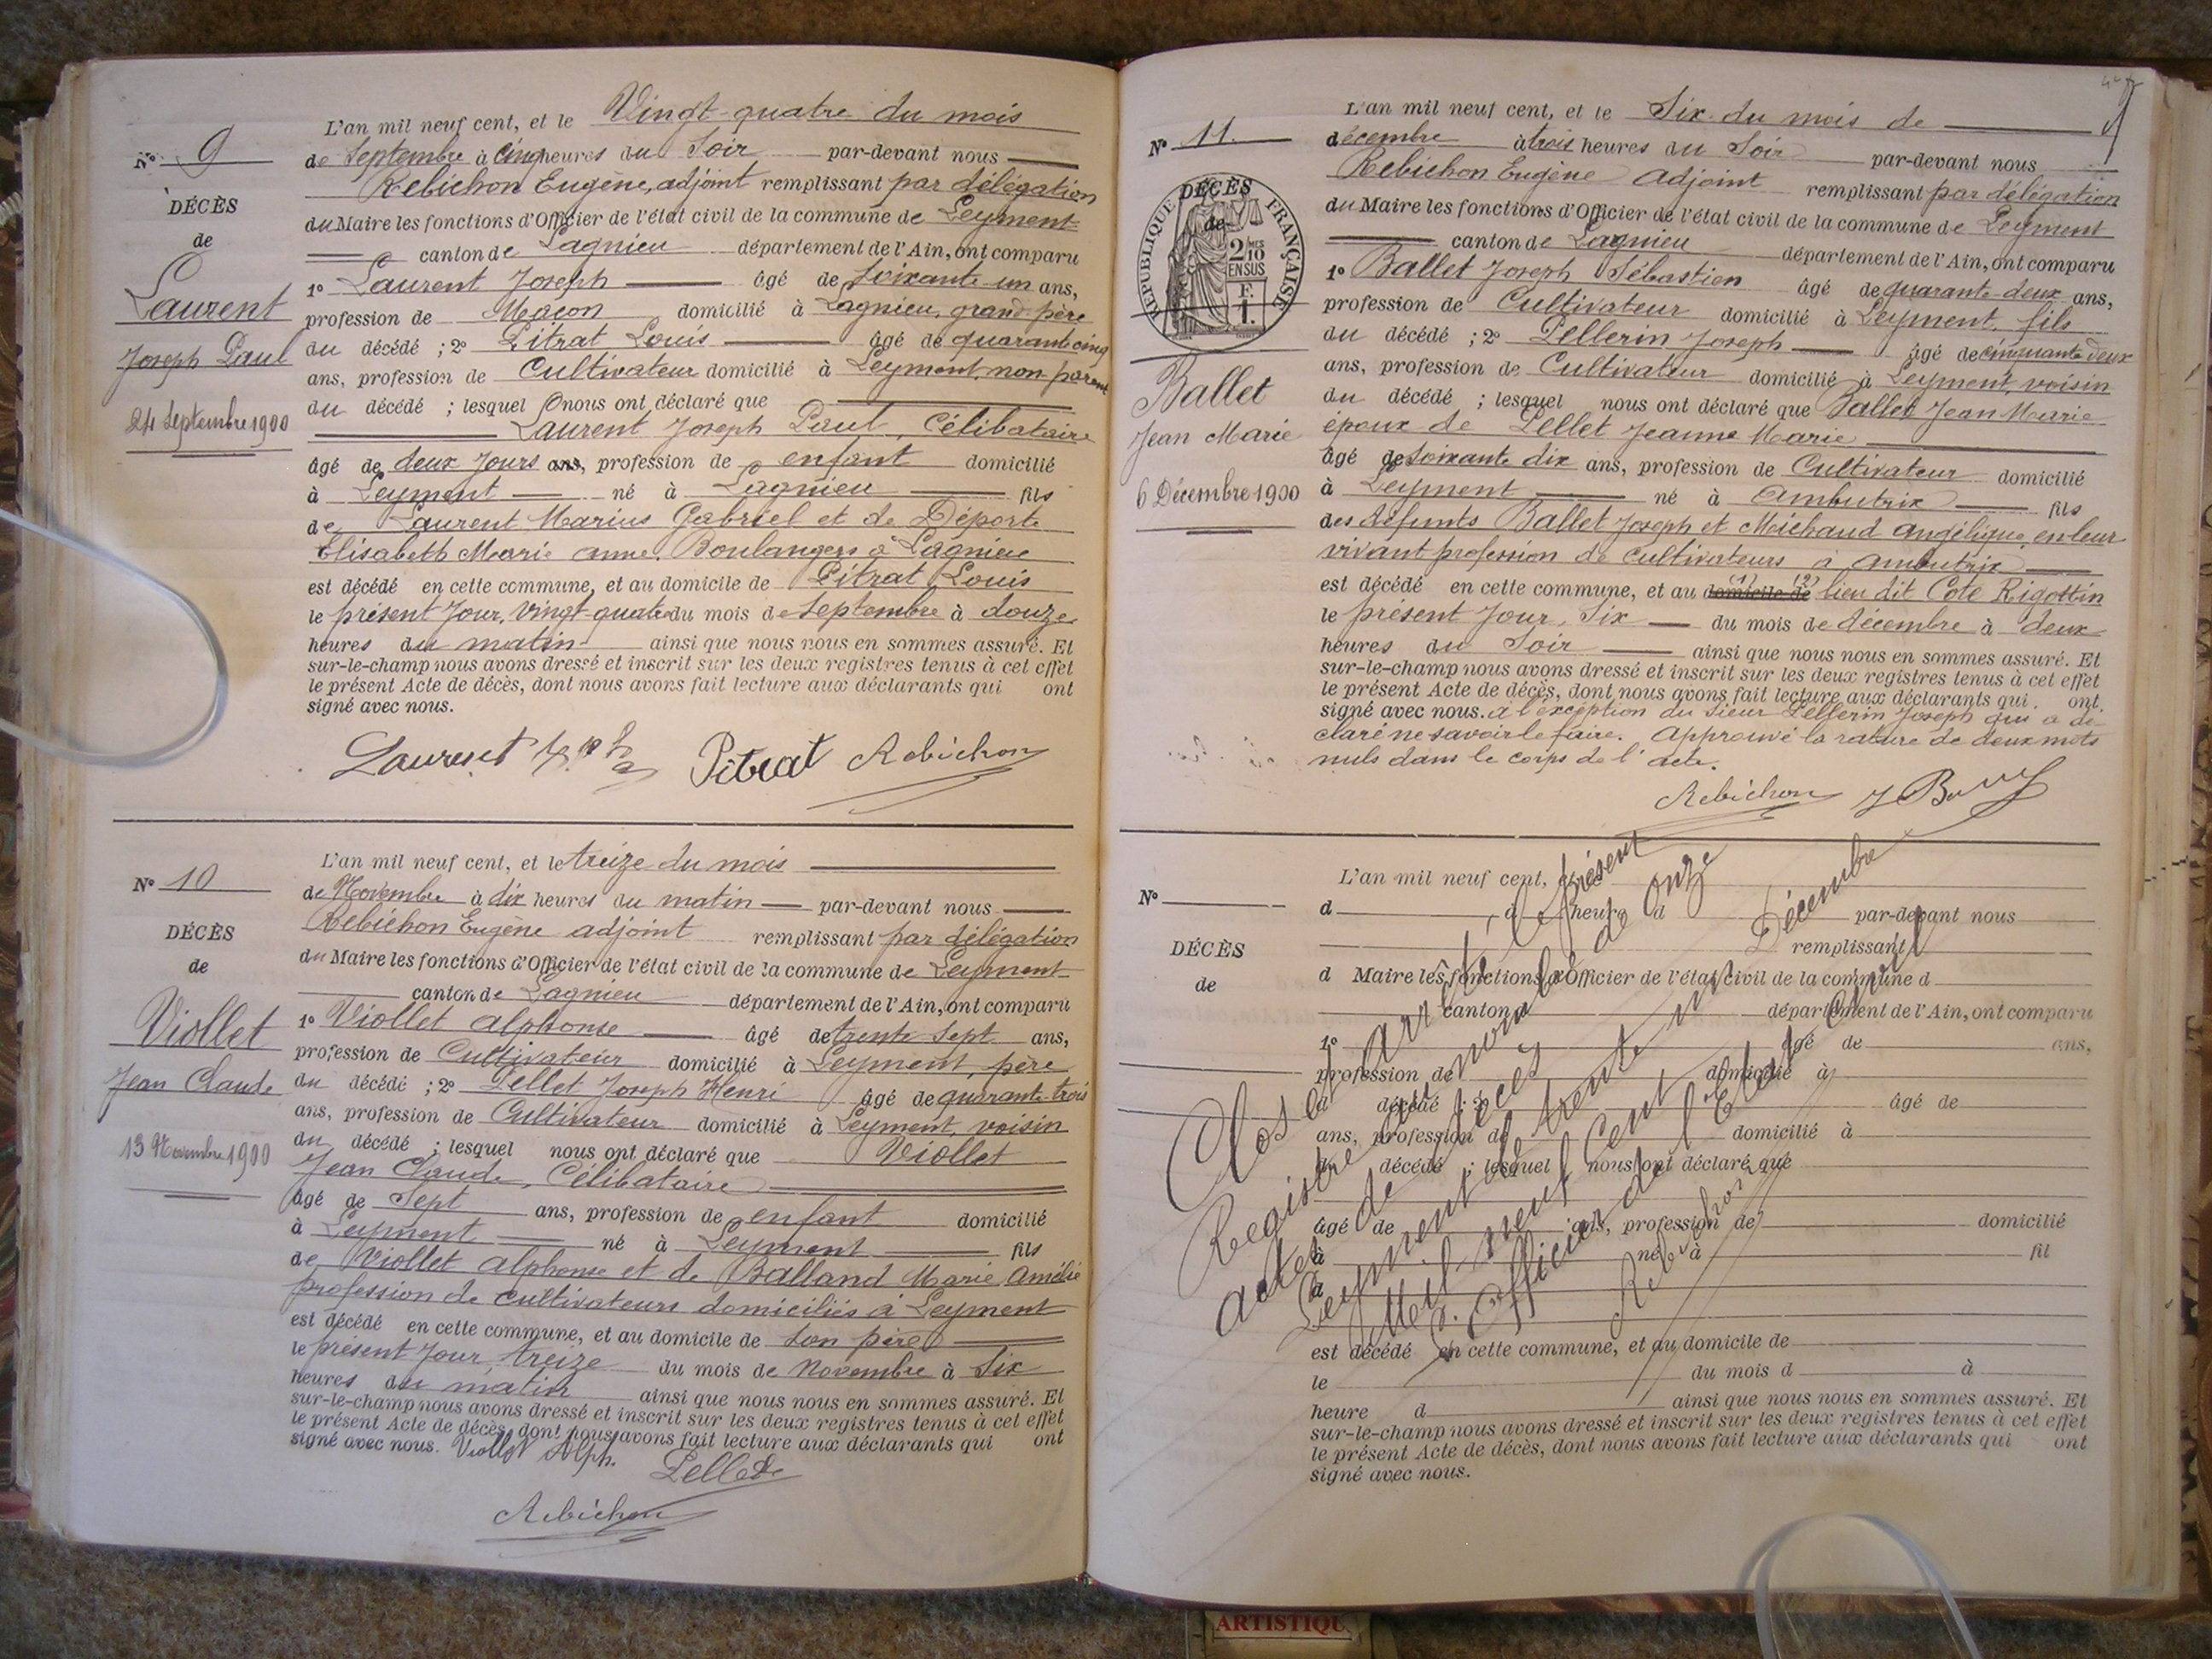 L'an mil neuf cent, et le Vingt-quatre du mois
N° 9
de Septembre à cinq heures du Soir par-devant nous
Rebichon Eugène, adjoint remplissant par délégation
DÉCÈS
du Maire les fonctions d'Officier de l'état civil de la commune de Leyment
de
canton de Lagnieu département de l'Ain, ont comparu
Laurent
1° Laurent Joseph âgé de soixante-un ans,
profession de Maçon domicilié à Lagnieu, grand père
Joseph Paul
du décédé ; 2° Pitrat Louis âgé de quarante cinq
ans, profession de Cultivateur domicilié à Leyment, non parent
24 Septembre 1900
du décédé ; lesquel nous ont déclaré que
Laurent Joseph Paul, Célibataire
âgé de deux Jours ans, profession de enfant domicilié
à Leyment né à Lagnieu fils
de Laurent Marius Gabriel et de Déporte
Elisabeth Marie anne, Boulangers à Lagnieu
est décédé en cette commune, et au domicile de Pitrat Louis
le présent Jour, Vingt-quatre du mois de Septembre à douze
heures du matin ainsi que nous nous en sommes assuré. Et
sur-le-champ nous avons dressé et inscrit sur les deux registres tenus à cet effet
le présent Acte de décès, dont nous avons fait lecture aux déclarants qui ont
signé avec nous.
Laurent Pitrat Rebichon
L'an mil neuf cent, et le treize du mois
N° 10
de Novembre à dix heures du matin par-devant nous
Rebichon Eugène adjoint remplissant par délégation
DÉCÈS
du Maire les fonctions d'Officier de l'état civil de la commune de Leyment
de
canton de Lagnieu département de l'Ain, ont comparu
Viollet
1° Viollet alphonse âgé de trente sept ans,
profession de Cultivateur domicilié à Leyment, père
Jean Claude
du décédé ; 2° Pellet Joseph Henri âgé de quarante-trois
ans, profession de Cultivateur domicilié à Leyment, voisin
13 Novembre 1900
du décédé ; lesquel nous ont déclaré que Viollet
Jean Claude, Célibataire
âgé de Sept ans, profession de enfant domicilié
à Leyment né à Leyment fils
de Viollet alphonse et de Balland Marie Amélie
profession de cultivateurs domiciliés à Leyment
est décédé en cette commune, et au domicile de son père
le présent Jour, treize du mois de Novembre à Six
heures du matin ainsi que nous nous en sommes assuré. Et
sur-le-champ nous avons dressé et inscrit sur les deux registres tenus à cet effet
le présent Acte de décès, dont nous avons fait lecture aux déclarants qui ont
signé avec nous. Viollet Alph. Pellet
Rebichon
L'an mil neuf cent, et le Six du mois de
N° 11.
décembre à trois heures du Soir par-devant nous
Rebichon Eugène adjoint remplissant par délégation
DÉCÈS
de
RÉPUBLIQUE FRANÇAISE
2/10 MES
EN SUS
F.
1.
du Maire les fonctions d'Officier de l'état civil de la commune de Leyment
canton de Lagnieu département de l'Ain, ont comparu
1° Ballet Joseph Sébastien âgé de quarante-deux ans,
profession de Cultivateur domicilié à Leyment, fils
du décédé ; 2° Pellerin Joseph âgé de cinquante deux
ans, profession de Cultivateur domicilié à Leyment, voisin
Ballet
du décédé ; lesquel nous ont déclaré que Ballet Jean Marie
Jean Marie
époux de Pellet Jeanne Marie
âgé de soixante dix ans, profession de Cultivateur domicilié
6 Décembre 1900
à Leyment né à Ambutrix fils
des défunts Ballet Joseph et Meichaud angélique, en leur
vivant profession de cultivateurs à Ambutrix
est décédé en cette commune, et au (1) domicile de (2) lieu dit Cote Rigottin
le présent Jour, Six du mois de décembre à deux
heures du Soir ainsi que nous nous en sommes assuré. Et
sur-le-champ nous avons dressé et inscrit sur les deux registres tenus à cet effet
le présent Acte de décès, dont nous avons fait lecture aux déclarants qui ont
signé avec nous. à l'exception du sieur Pellerin Joseph qui a dé-
claré ne savoir le faire. Approuvé la rature de deux mots
nuls dans le corps de l'acte.
Rebichon
L'an mil neuf cent, et le
N°
d à heure d par-devant nous
remplissant
DÉCÈS
d Maire les fonctions d'Officier de l'état civil de la commune d
de
canton département de l'Ain, ont comparu
1° âgé de ans,
profession de domicilié à
d décédé ; 2° âgé de
ans, profession de domicilié à
d décédé ; lesquel nous ont déclaré que
âgé de ans, profession de domicilié
à né à fil
d
est décédé en cette commune, et au domicile de
le du mois d à
heure d ainsi que nous nous en sommes assuré. Et
sur-le-champ nous avons dressé et inscrit sur les deux registres tenus à cet effet
le présent Acte de décès, dont nous avons fait lecture aux déclarants qui ont
signé avec nous.
Clos et arrêté le présent
Registre au nombre de onze
actes de décès
Leyment le trente un Décembre
Mil neuf cent
L'Officier de l'Etat civil
Rebichon
ARTISTIQU